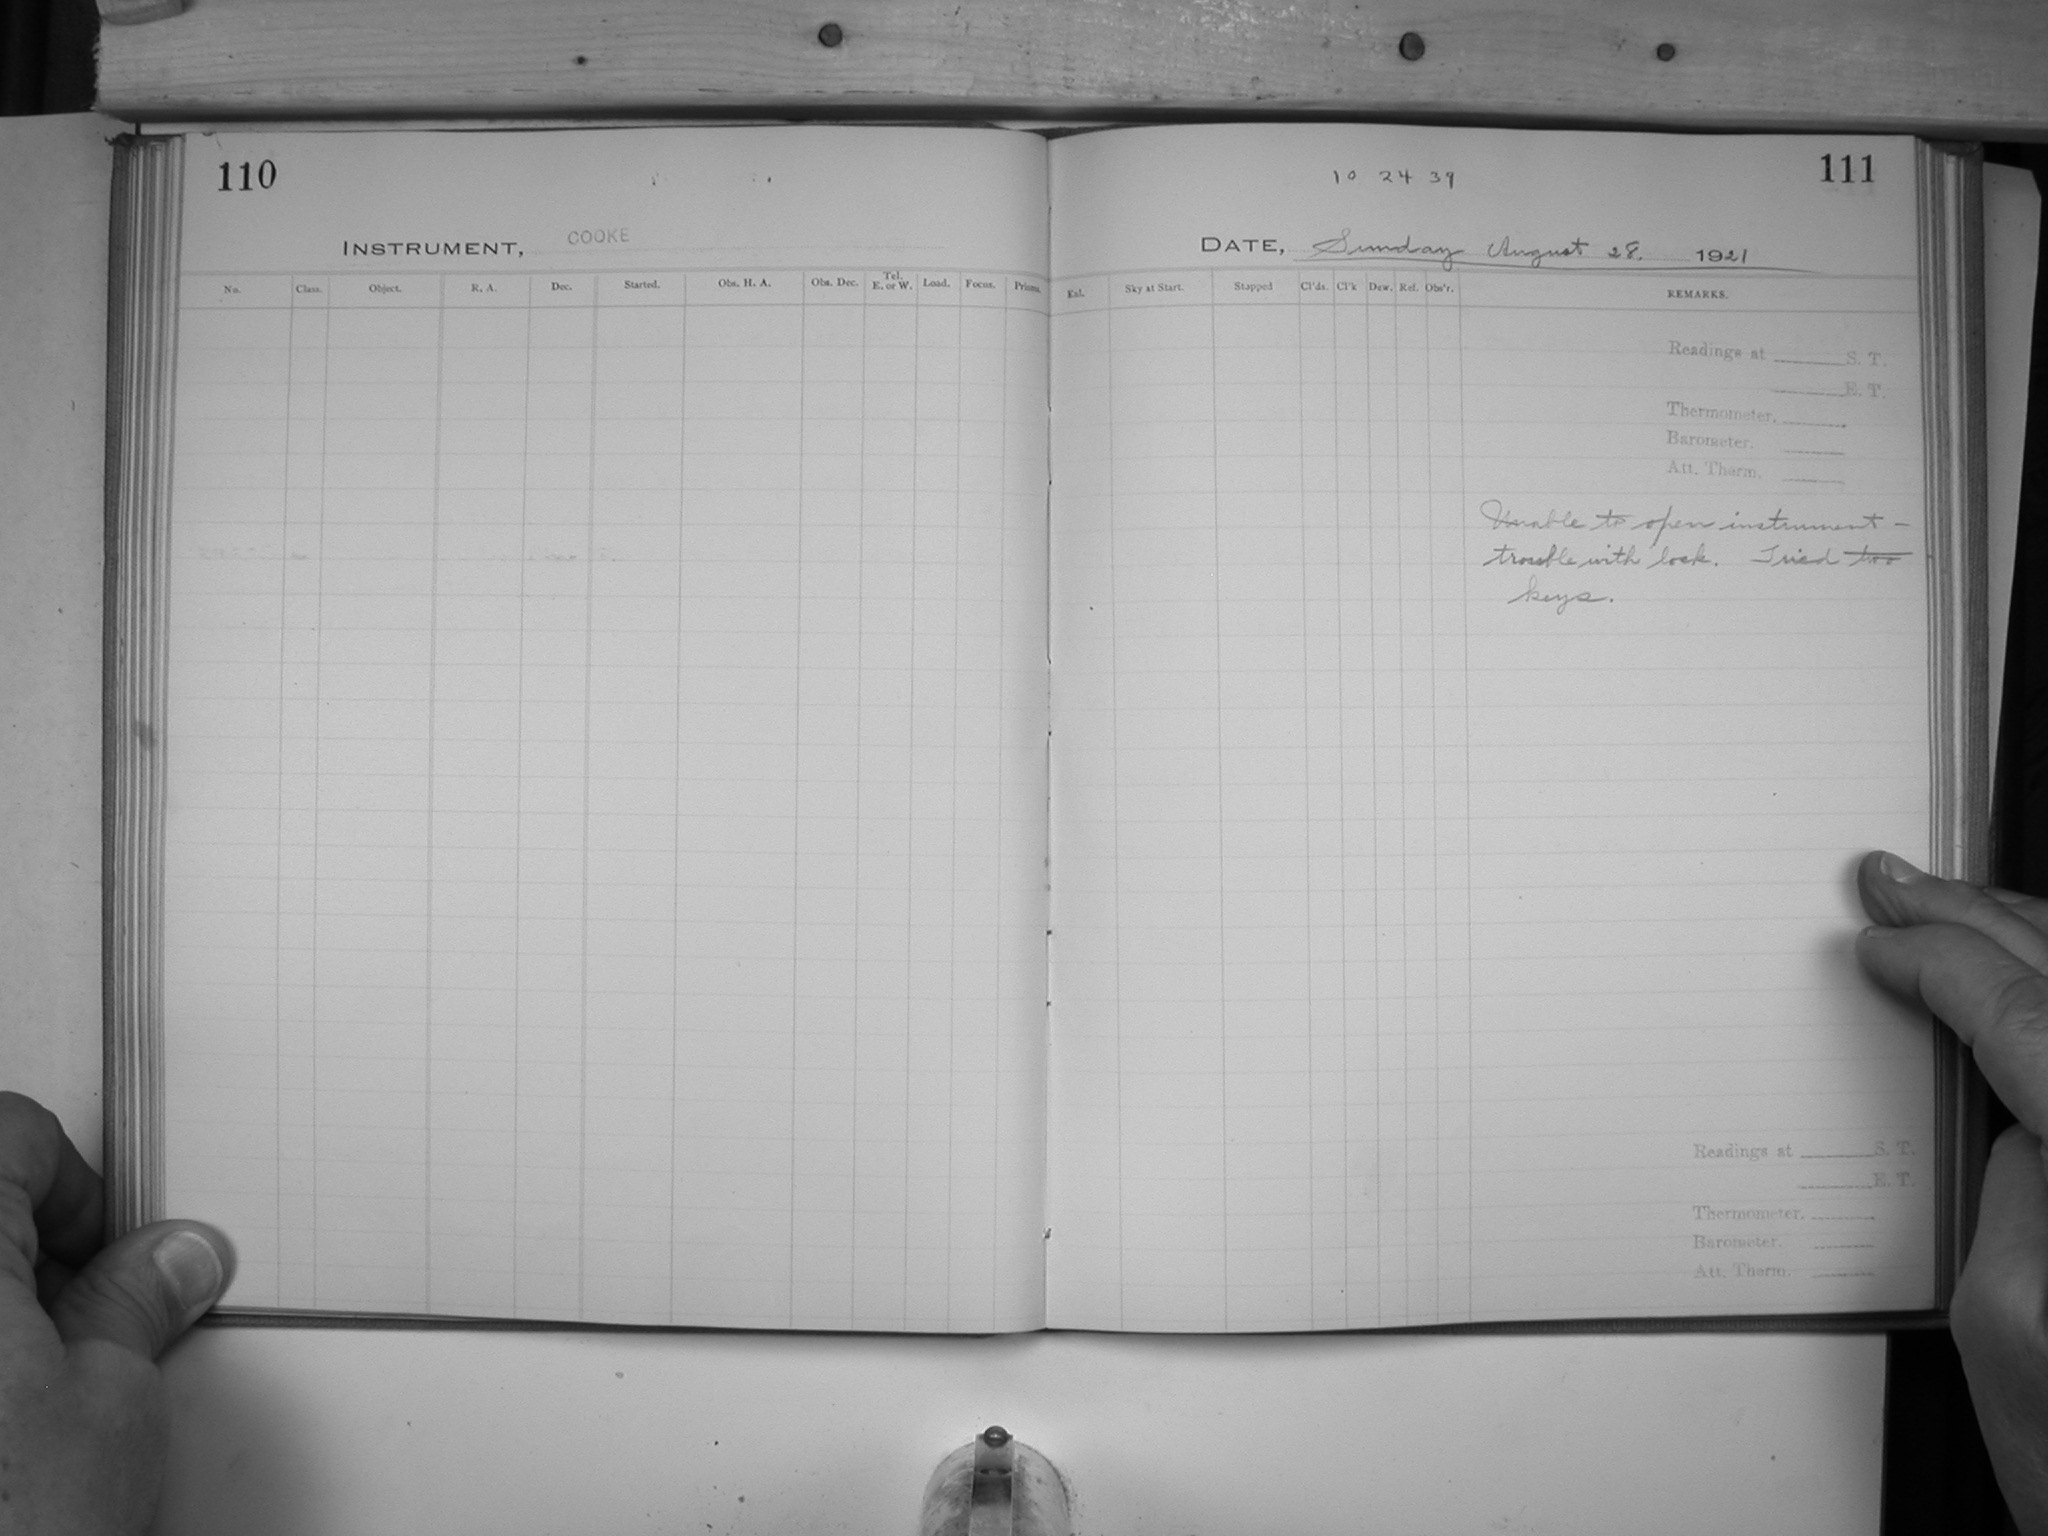 110
INSTRUMENT, COOKE
No. Class. Object. R. A. Dec. Started. Obs. H. A. Obs. Dec. Tel. E. or W. Load. Focus. Prisms.
10 24 39
111
DATE, Sunday August 28. 1921
Exl. Sky at Start. Stopped Cl'ds. Cl'k Dew. Ref. Obs'r. REMARKS.
Readings at ______ S. T.
______ E. T.
Thermometer. ______
Barometer. ______
Att. Therm. ______
Unable to open instrument –
trouble with lock. Tried two
keys.
Readings at ______ S. T.
______ E. T.
Thermometer. ______
Barometer. ______
Att. Therm. ______